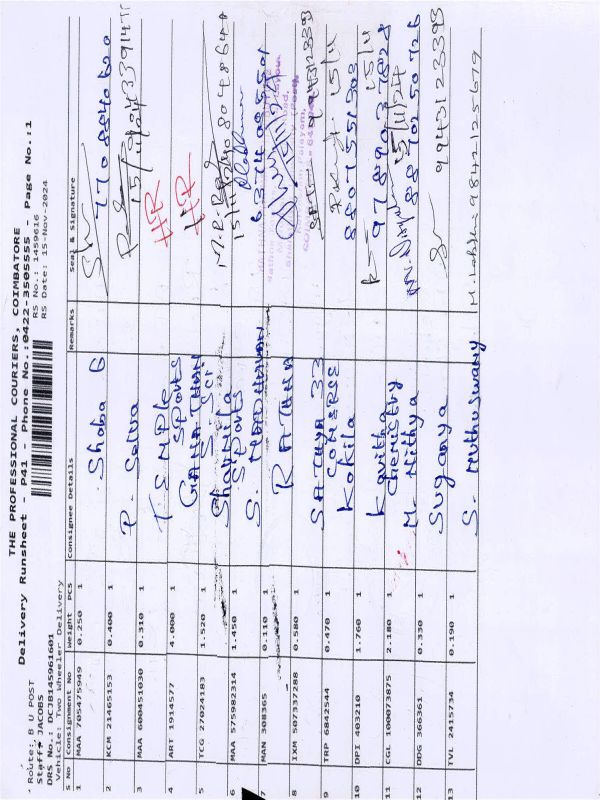 THE PROFESSIONAL COURIERS, COIMBATORE
Delivery Runsheet - P41 - Phone No.:0422-3505555 - Page No.:1
Route: B U POST
RS No.: 1459616
Staff: JACOBS
RS Date: 15-Nov-2024
DRS No.: DCJB145961601
Vehicle: Two Wheeler Delivery
S No Consignment No Weight PCS Consignee Details Remarks Seal & Signature
1 MAA 705475949 0.250 1 Shoba G 7708840620
2 KCM 21465153 0.400 1 P. Selva 15/11/24
3 MAA 600451030 0.310 1 TEMPLE HR
4 ART 1914577 4.000 1 Sports HR
5 TCG 27024183 1.520 1
6 MAA 575982314 1.450 1 Sharmila Sports
7 MAN 308365 0.110 1 S. MADHAVAN
8 IXM 507337288 0.580 1 RATHNA
9 TRP 6842544 0.470 1 SATHYA 33
10 DPI 403210 1.760 1 Kokila 8807551303
11 CGL 100073875 2.180 1 Kavitha Chemistry 9789037828
12 DDG 366361 0.330 1 M. Nithya 15/11/24 8870250726
Suganya 9943123393
13 TVL 2415734 0.190 1 S. Muthuswamy 9842125679